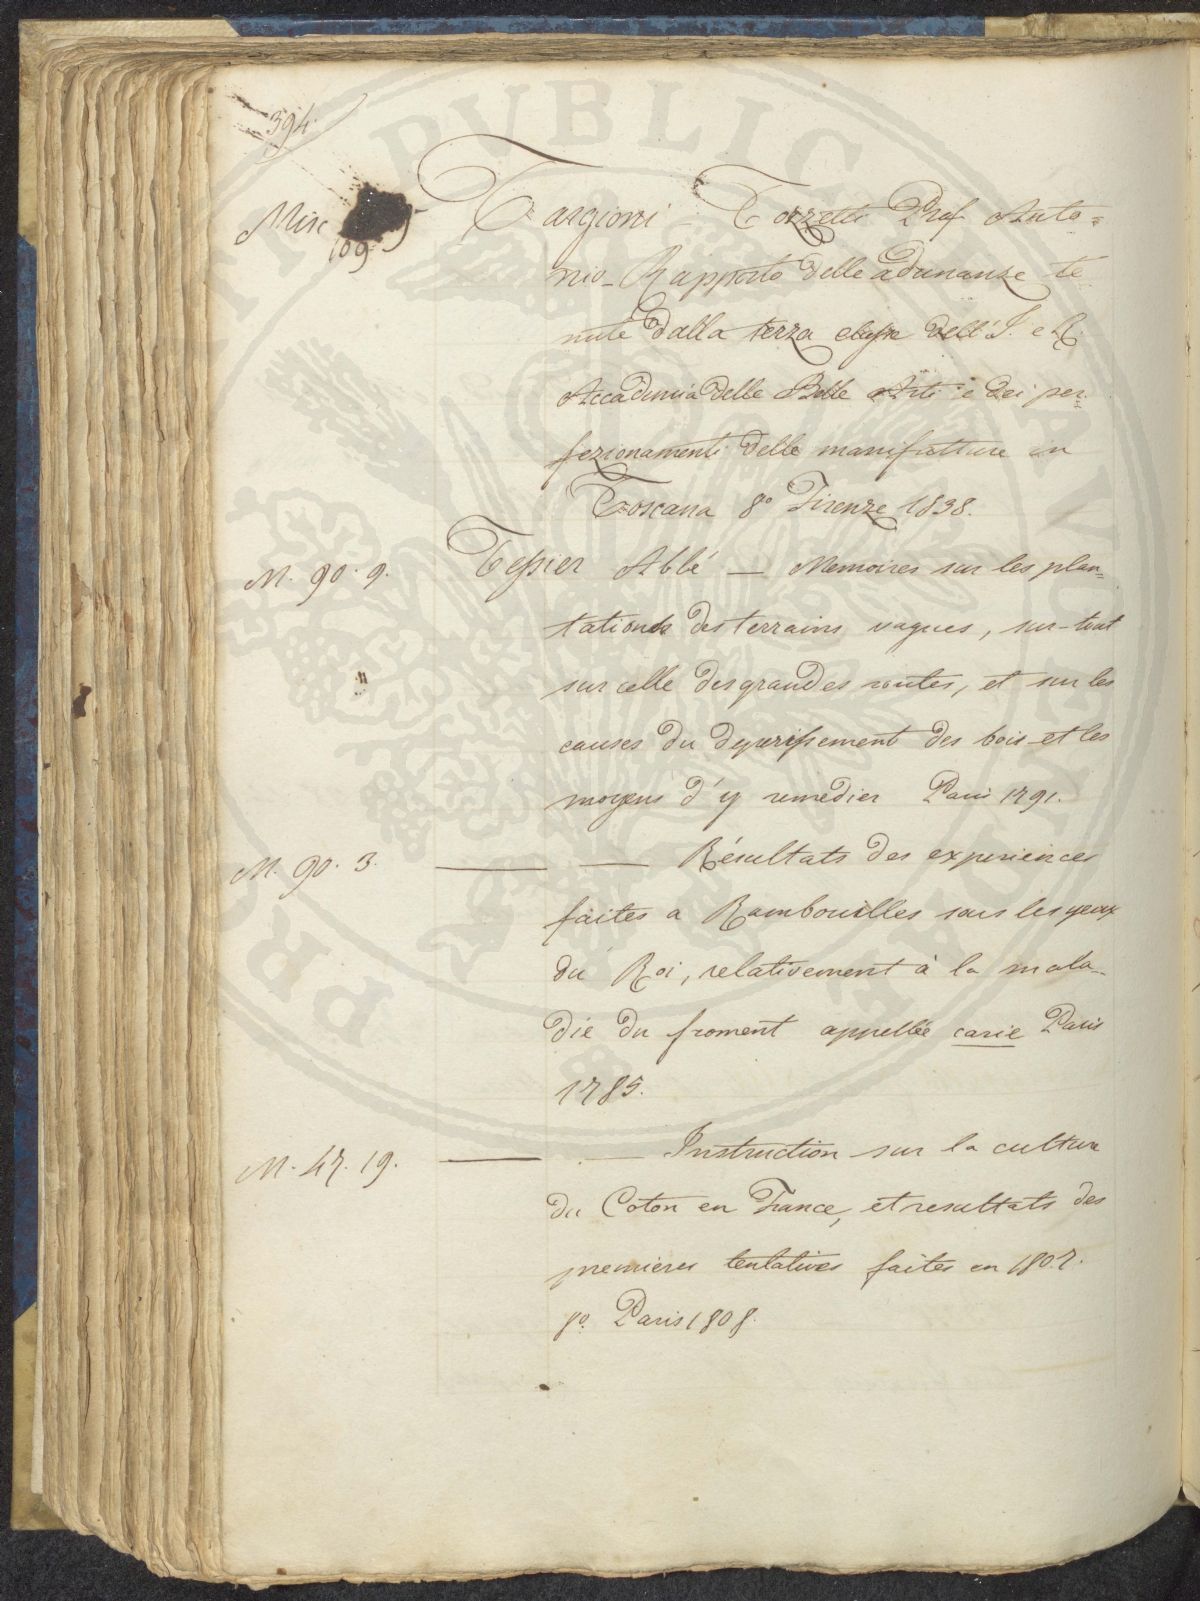 394.
Misc
109.
Targioni - Tozzetti Prof. Anto=
nio - Rapporto delle adunanze te
nute dalla terza classe dell'I. e R.
Accademia delle Belle Arti e dei per
fezionamenti delle manifatture in
Toscana 8º Firenze 1838.
M. 90. 9. Tessier Abbé — Memoires sur les plan=
tations des terrains vagues, sur-tout
sur celle des grandes routes, et sur les
causes du deperissement des bois et les
moyens d'y remedier Paris 1791.
M. 90. 3. — — Résultats des experiences
faites a Rambouilles sous les yeux
du Roi, relativement à la mala-
die du froment appellée carie Paris
1785.
M. 47. 19. — — Instruction sur la culture
du Coton en France, et resultats des
premieres tentatives faites en 1807.
8º. Paris 1808.
PROSPERITATI PUBLICAE AUGENDAE